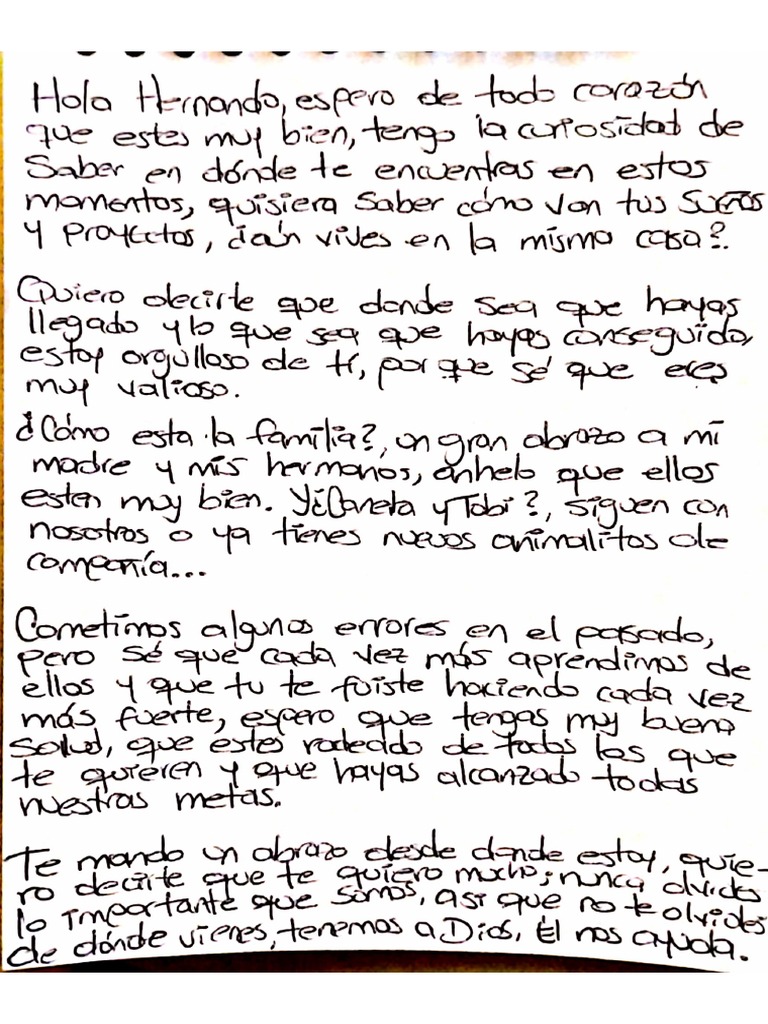 Hola Hernando, espero de todo corazón
que estes muy bien, tengo la curiosidad de
Saber en dónde te encuentras en estos
momentos, quisiera saber cómo van tus sueños
y proyectos, ¿aún vives en la misma casa?.
Quiero decirte que donde sea que hayas
llegado y lo que sea que hayas conseguido,
estoy orgulloso de tí, por que sé que eres
muy valioso.
¿Cómo esta la familia?, un gran abrazo a mi
madre y mis hermanos, anhelo que ellos
esten muy bien. Y ¿Canela y Tobi?, siguen con
nosotros o ya tienes nuevos animalitos de
compañía...
Cometimos algunos errores en el pasado,
pero sé que cada vez más aprendimos de
ellos y que tu te fuiste haciendo cada vez
más fuerte, espero que tengas muy buena
salud, que estes rodeado de todos los que
te quieren y que hayas alcanzado todas
nuestras metas.
Te mando un abrazo desde donde estoy, quie-
ro decirte que te quiero mucho; nunca olvides
lo importante que somos, asi que no te olvides
de dónde vienes, tenemos a Dios, Él nos ayuda.